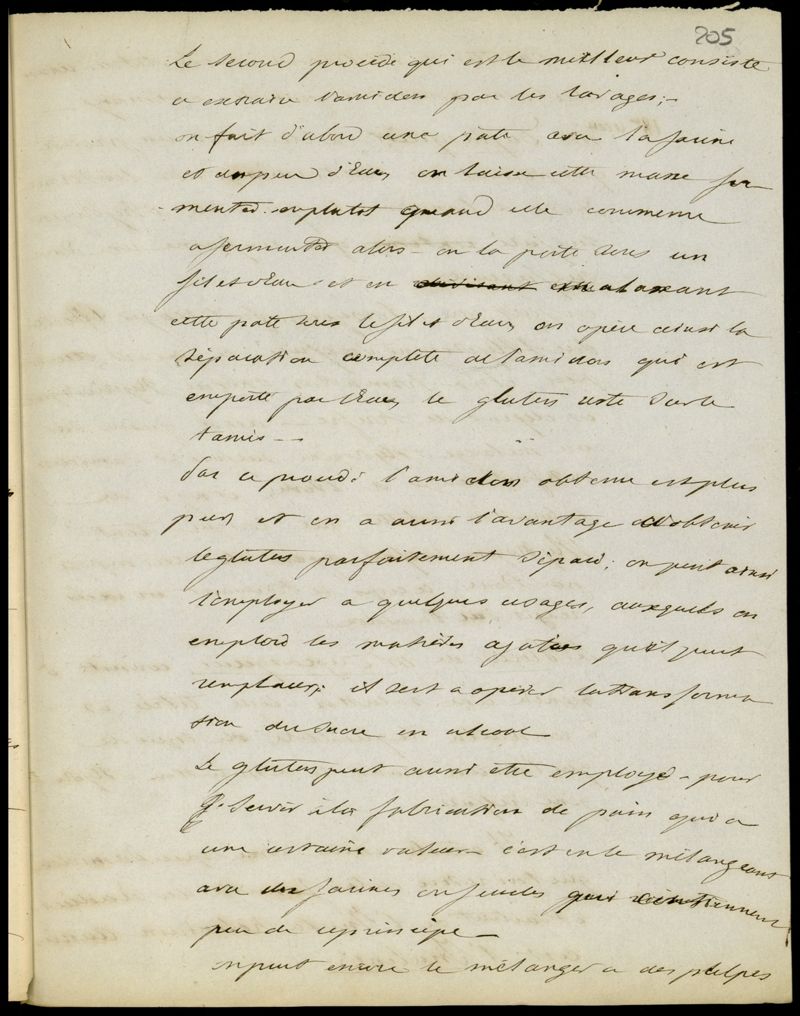 205
Le second procédé qui est le meilleur consiste
a extraire l'amidon par les lavages;-
on fait d'abord une pâte avec la farine
et un peu d'Eau, on laisse cette masse fer
menter. ou plutot quand elle commence
a fermenter alors - on la porte sous un
filet d'Eau et en divisant malaxant
cette pâte sous le filet d'Eau, on opère ainsi la
séparation complète de l'amidon qui est
emporté par l'Eau, le gluten reste sur le
tamis - -
Par ce procédé l'amidon obtenu est plus
pur et on a aussi l'avantage d'obtenir
le gluten parfaitement séparé; on peut ainsi
l'employer a quelques usages, auxquels on
emploie les matières azotées qu'il peut
remplacer; il sert a opérer la transforma
tion du sucre en alcool
Le gluten peut aussi être employé - pour
servir à la fabrication de pain qui a
une certaine valeur - c'est en le mélangeant
avec des farines ou fecules qui contiennent
peu de ce principe -
on peut encore le mélanger a des pulpes